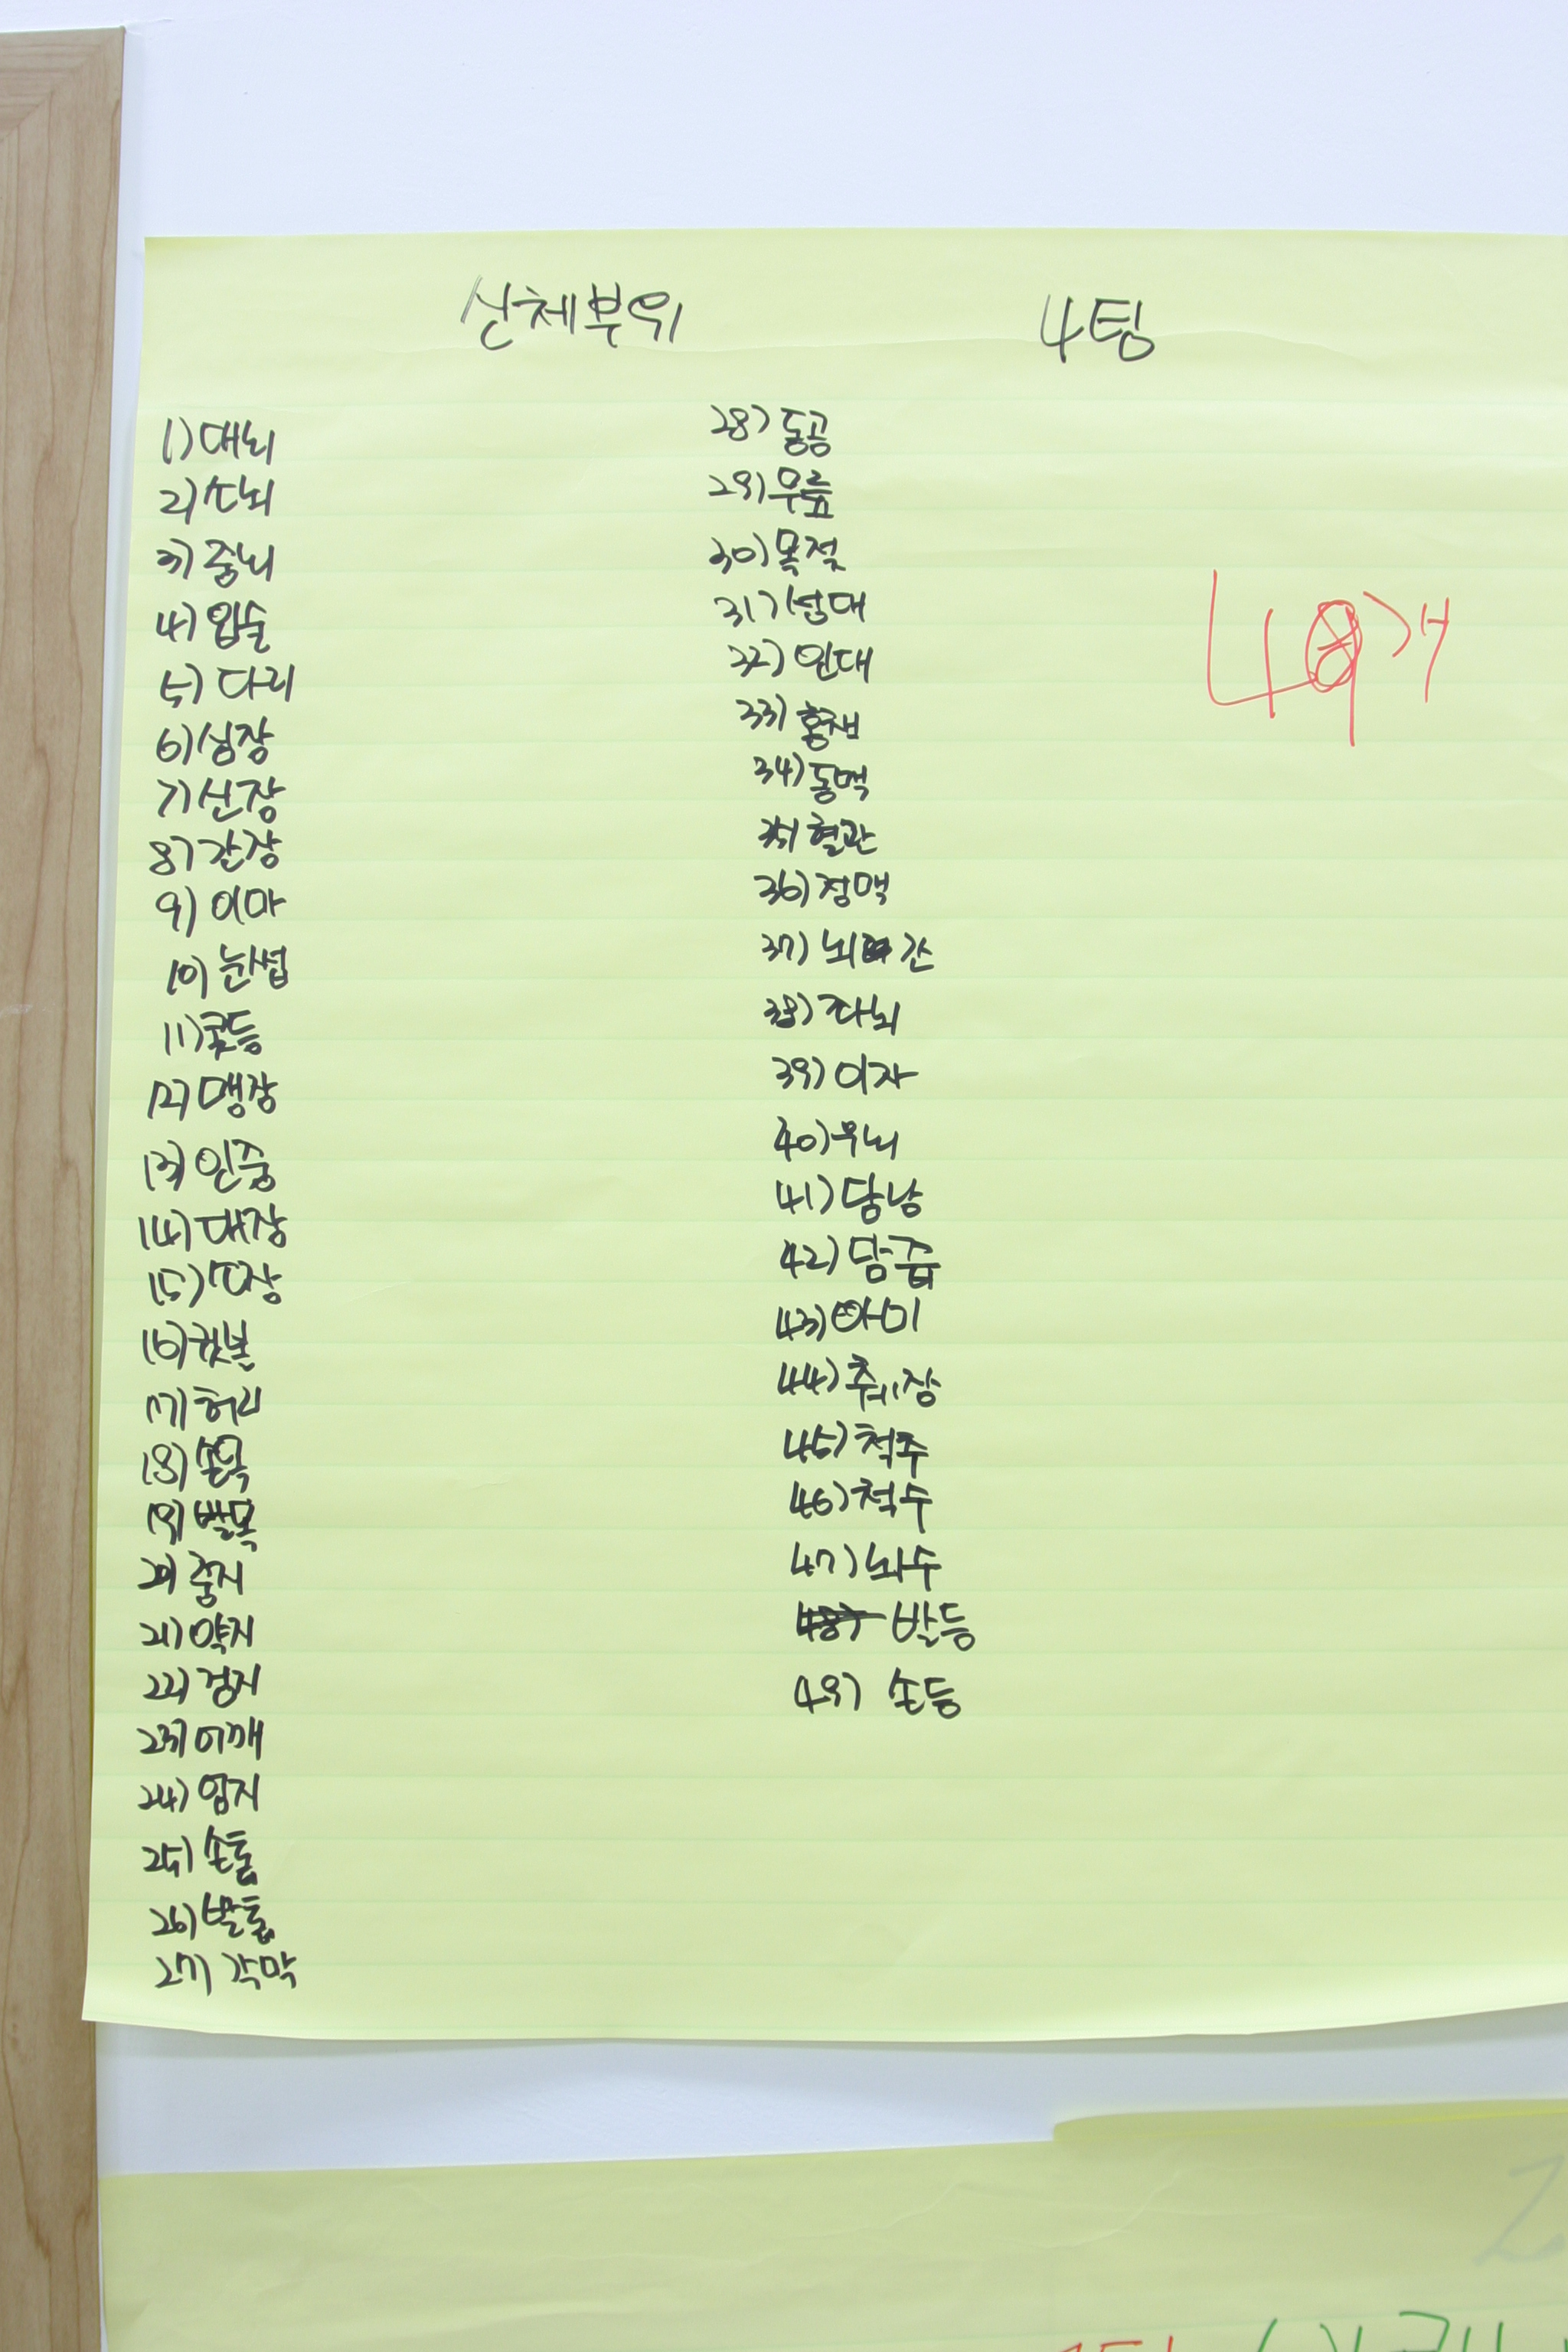 신체부위 4팀
1) 대뇌
2) 소뇌
3) 중뇌
4) 입술
5) 다리
6) 심장
7) 신장
8) 간장
9) 이마
10) 눈썹
11) 콧등
12) 맹장
13) 인중
14) 대장
15) 소장
16) 귓볼
17) 허리
18) 손목
19) 발목
20) 중지
21) 약지
22) 검지
23) 어깨
24) 엄지
25) 손톱
26) 발톱
27) 각막
28) 동공
29) 무릎
30) 목젖
31) 성대
32) 인대
33) 홍채
34) 동맥
35) 혈관
36) 정맥
37) 뇌간
38) 좌뇌
39) 이자
40) 우뇌
41) 담낭
42) 담즙
43) 아미
44) 췌장
45) 척주
46) 척수
47) 뇌수
48) 발등
49) 손등
49개